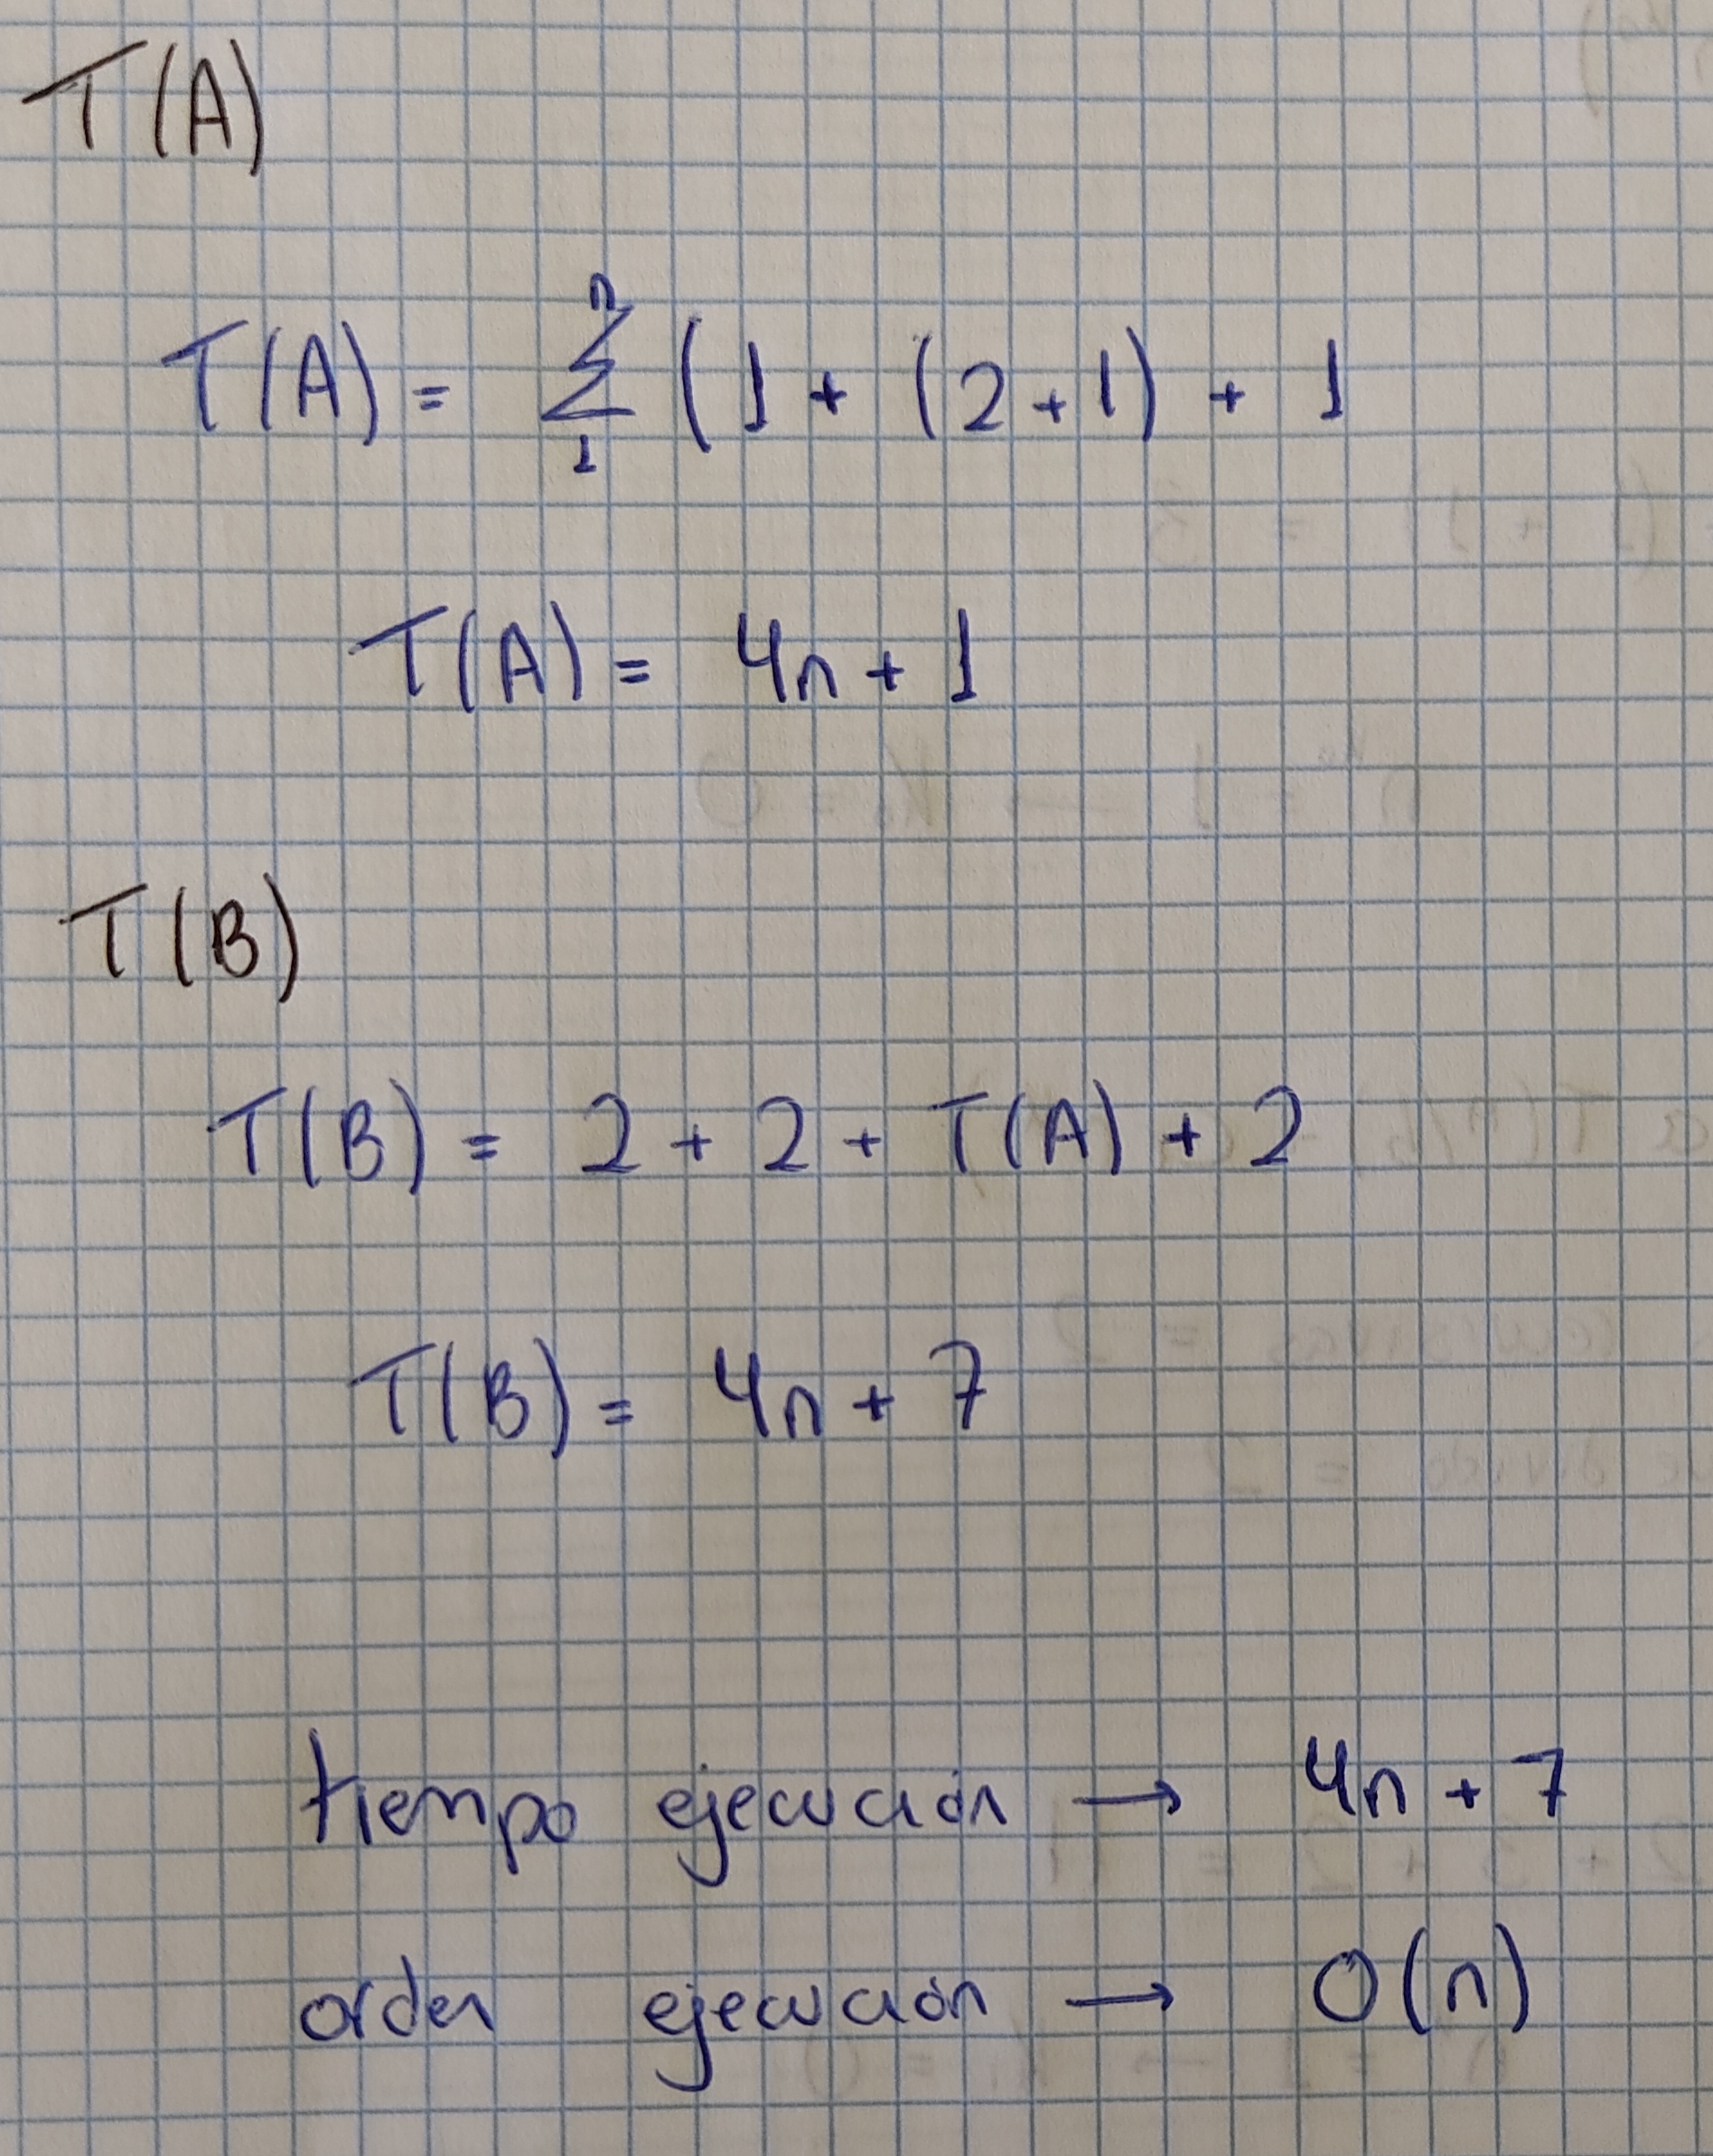 T(A)
n
T(A) = Σ (1 + (2+1) + 1
1
T(A) = 4n + 1
T(B)
T(B) = 2 + 2 + T(A) + 2
T(B) = 4n + 7
tiempo ejecución → 4n + 7
orden ejecución → O(n)